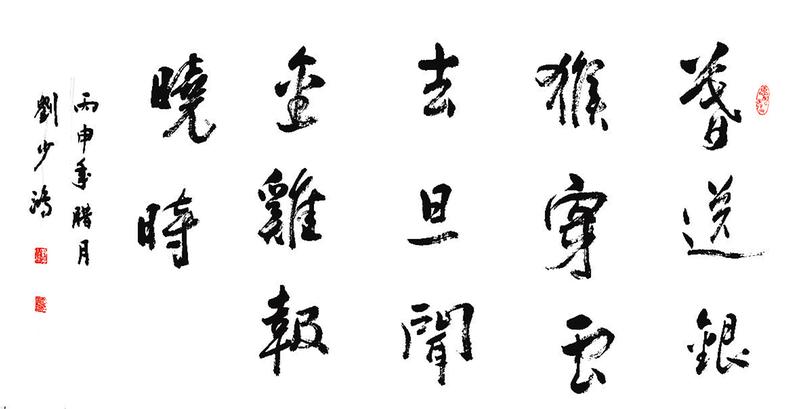 暮送銀
猴穿雲
去旦聞
金雞報
曉時
丙申年腊月
劉少鴻